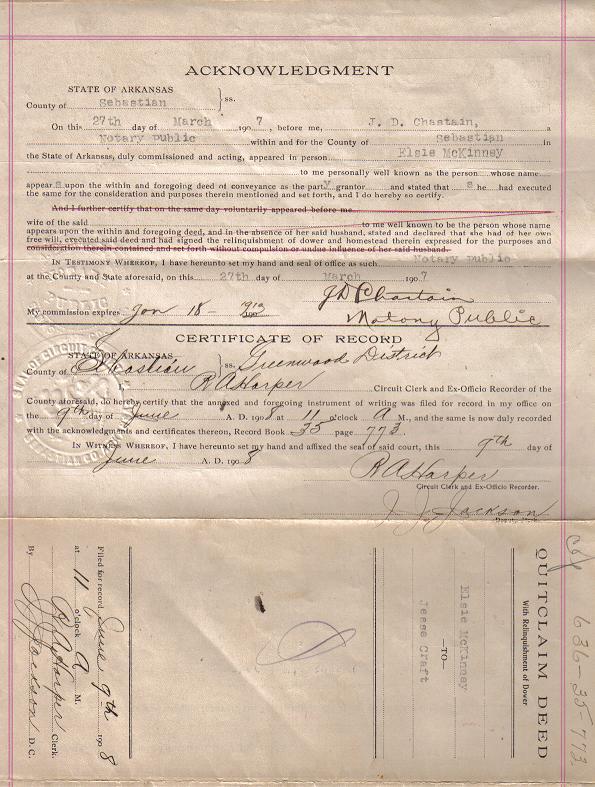 ACKNOWLEDGMENT
STATE OF ARKANSAS
County of Sebastian } ss.
On this 27th day of March 1907, before me, J. D. Chastain, a
Notary Public within and for the County of Sebastian in
the State of Arkansas, duly commissioned and acting, appeared in person Elsie McKinney
to me personally well known as the person whose name
appears upon the within and foregoing deed of conveyance as the party grantor and stated that she had executed
the same for the consideration and purposes therein mentioned and set forth, and I do hereby so certify.
And I further certify that on the same day voluntarily appeared before me
wife of the said to me well known to be the person whose name
appears upon the within and foregoing deed, and in the absence of her said husband, stated and declared that she had of her own
free will, executed said deed and had signed the relinquishment of dower and homestead therein expressed for the purposes and
consideration therein contained and set forth without compulsion or undue influence of her said husband.
IN TESTIMONY WHEREOF, I have hereunto set my hand and seal of office as such Notary Public
at the County and State aforesaid, on this 27th day of March 1907
J D Chastain
My commission expires Jan 18 - 1913 Notary Public
CERTIFICATE OF RECORD
STATE OF ARKANSAS
County of Sebastian } ss. Greenwood District
I, R A Harper Circuit Clerk and Ex-Officio Recorder of the
County aforesaid, do hereby certify that the annexed and foregoing instrument of writing was filed for record in my office on
the 9th day of June A. D. 1908 at 11 o'clock A M., and the same is now duly recorded
with the acknowledgments and certificates thereon, Record Book 35 page 773.
IN WITNESS WHEREOF, I have hereunto set my hand and affixed the seal of said court, this 9th day of
June A. D. 1908
R A Harper
Circuit Clerk and Ex-Officio Recorder.
J. J. Jackson
Deputy Clerk.
636-35-773
QUITCLAIM DEED
With Relinquishment of Dower
Elsie McKinney
—TO—
Jesse Craft
Filed for record June 9th 1908
at 11 o'clock A M.
R A Harper Clerk.
By J J Jackson D. C.